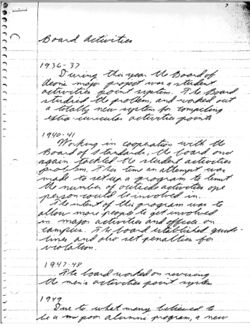 Board Activities
1936-37
During this year the Board of
Deans major project was a student
activities point system. The Board
studied the problem, and worked out
a totally new system for computing
extra curricular activities points
1940-41
Working in cooperation with the
Board of Standards, the board once
again tackled the student activities
problem. This time an attempt was
made to set up a program to limit
the number of critical activities one
person could be involved in.
The intent of this program was to
allow more people to get involved
in major activities and offices on
campus. The board established guide-
lines and also set penalties for
violation.
1947-48
The board worked on revising
the men's activities point system
1949
Due to what many believed to
be a poor alumni program, a new